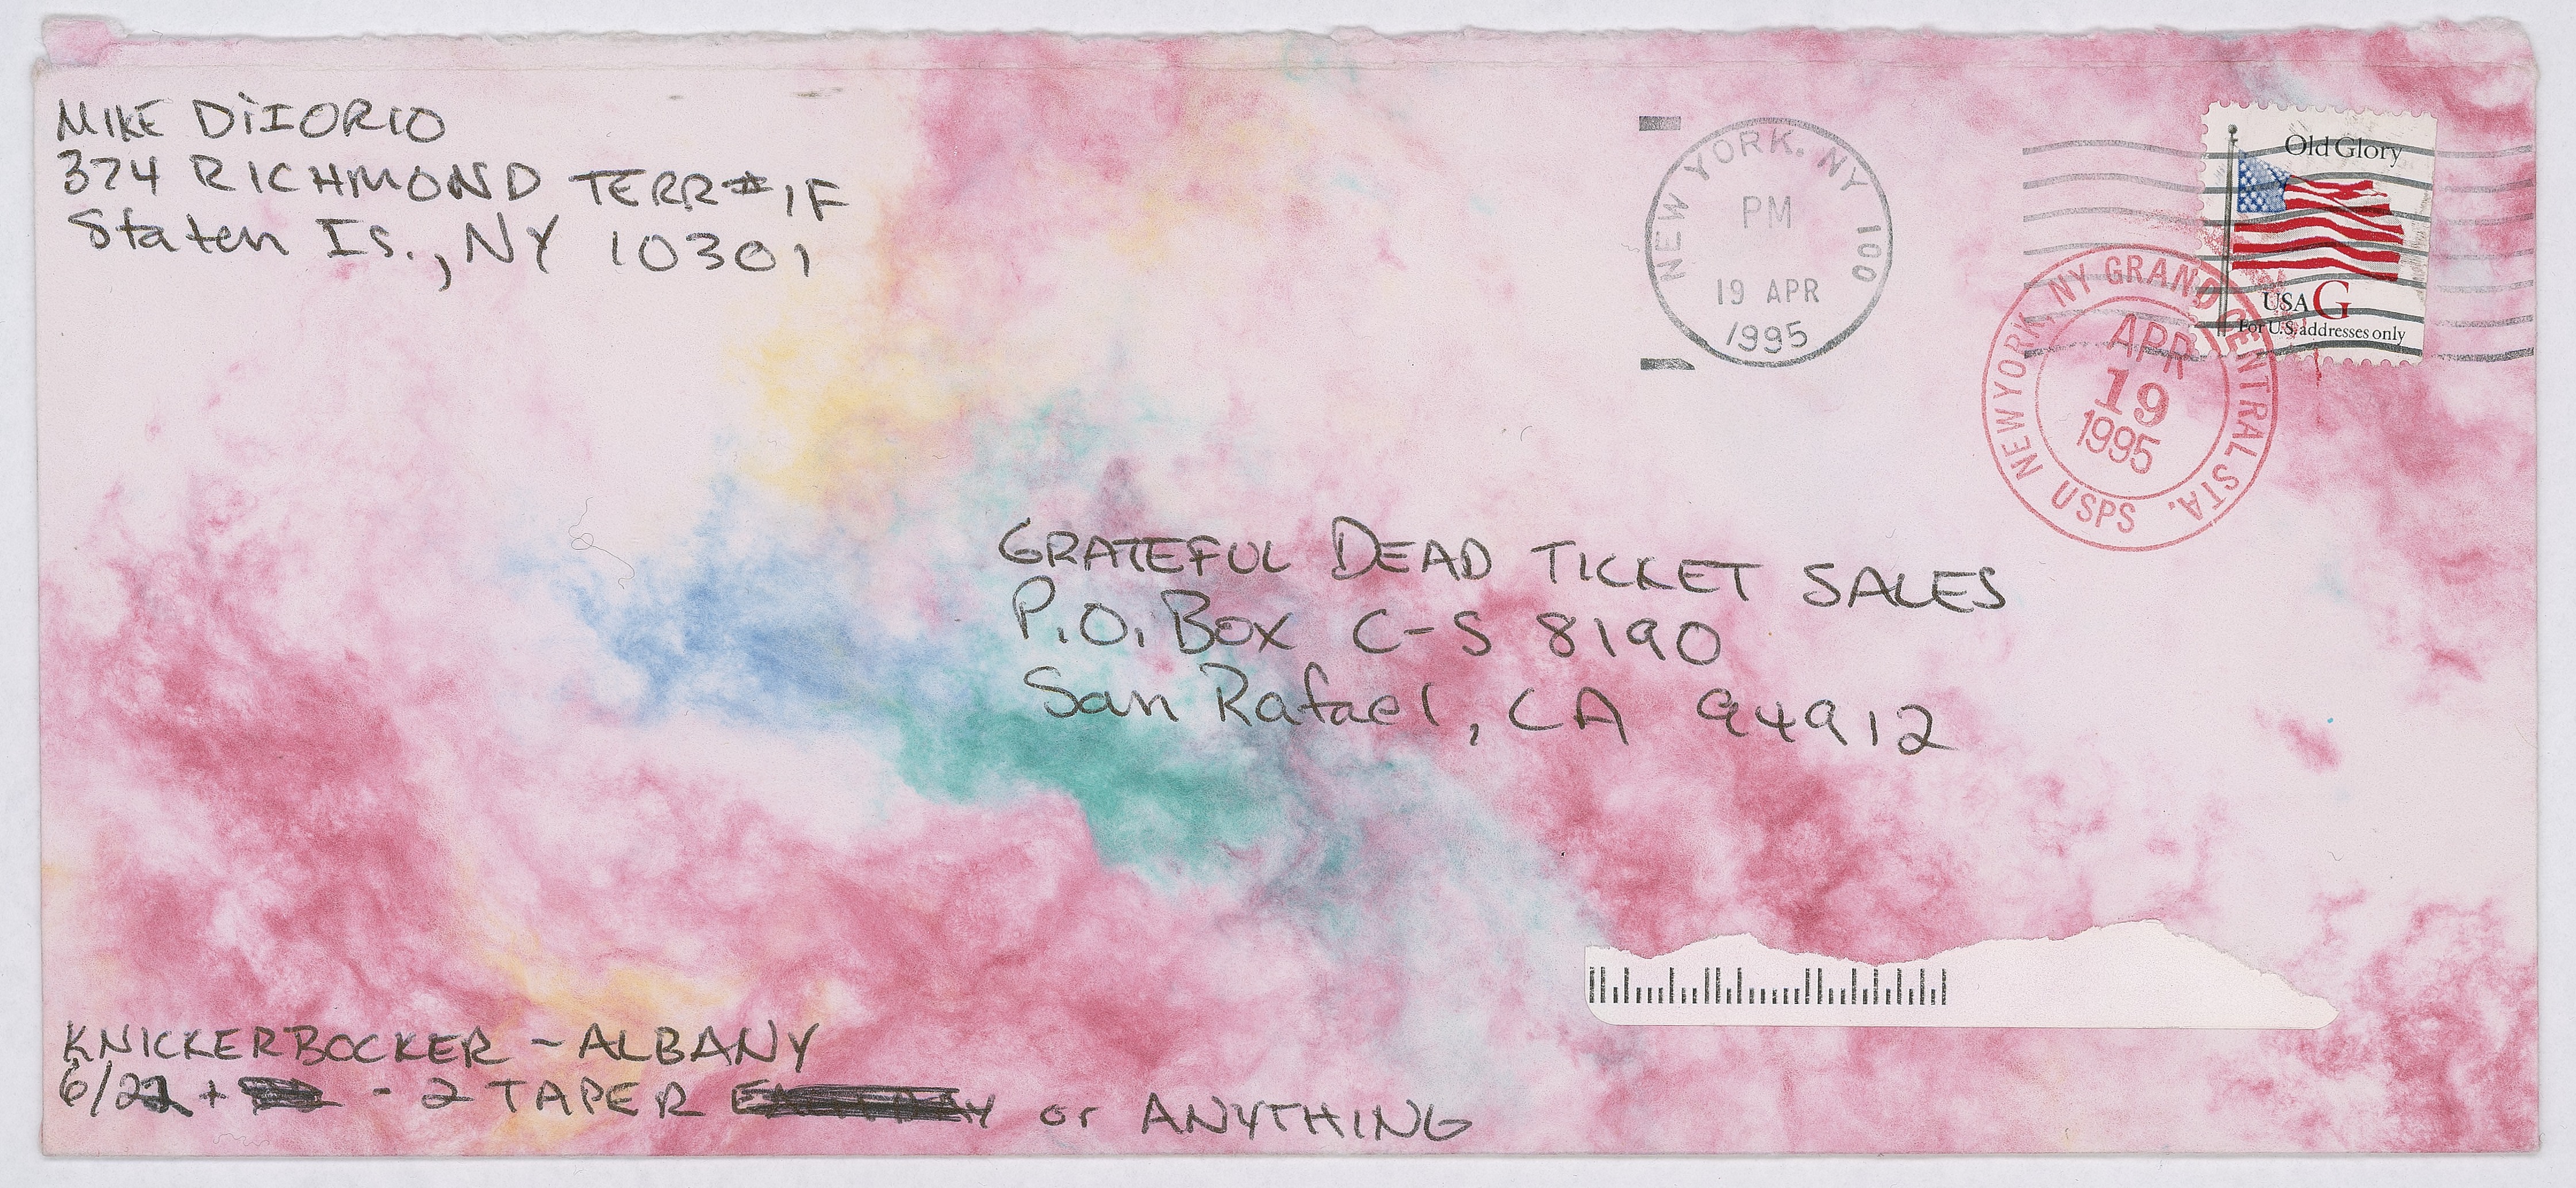 MIKE DiIORIO
374 RICHMOND TERR #1F
Staten Is., NY 10301
NEW YORK, NY 100
PM
19 APR
1995
Old Glory
USA G
For U.S. addresses only
NEW YORK, NY GRAND CENTRAL STA.
APR
19
1995
USPS
GRATEFUL DEAD TICKET SALES
P.O. Box C-S 8190
San Rafael, CA 94912
KNICKERBOCKER - ALBANY
6/21 + - 2 TAPER or ANYTHING